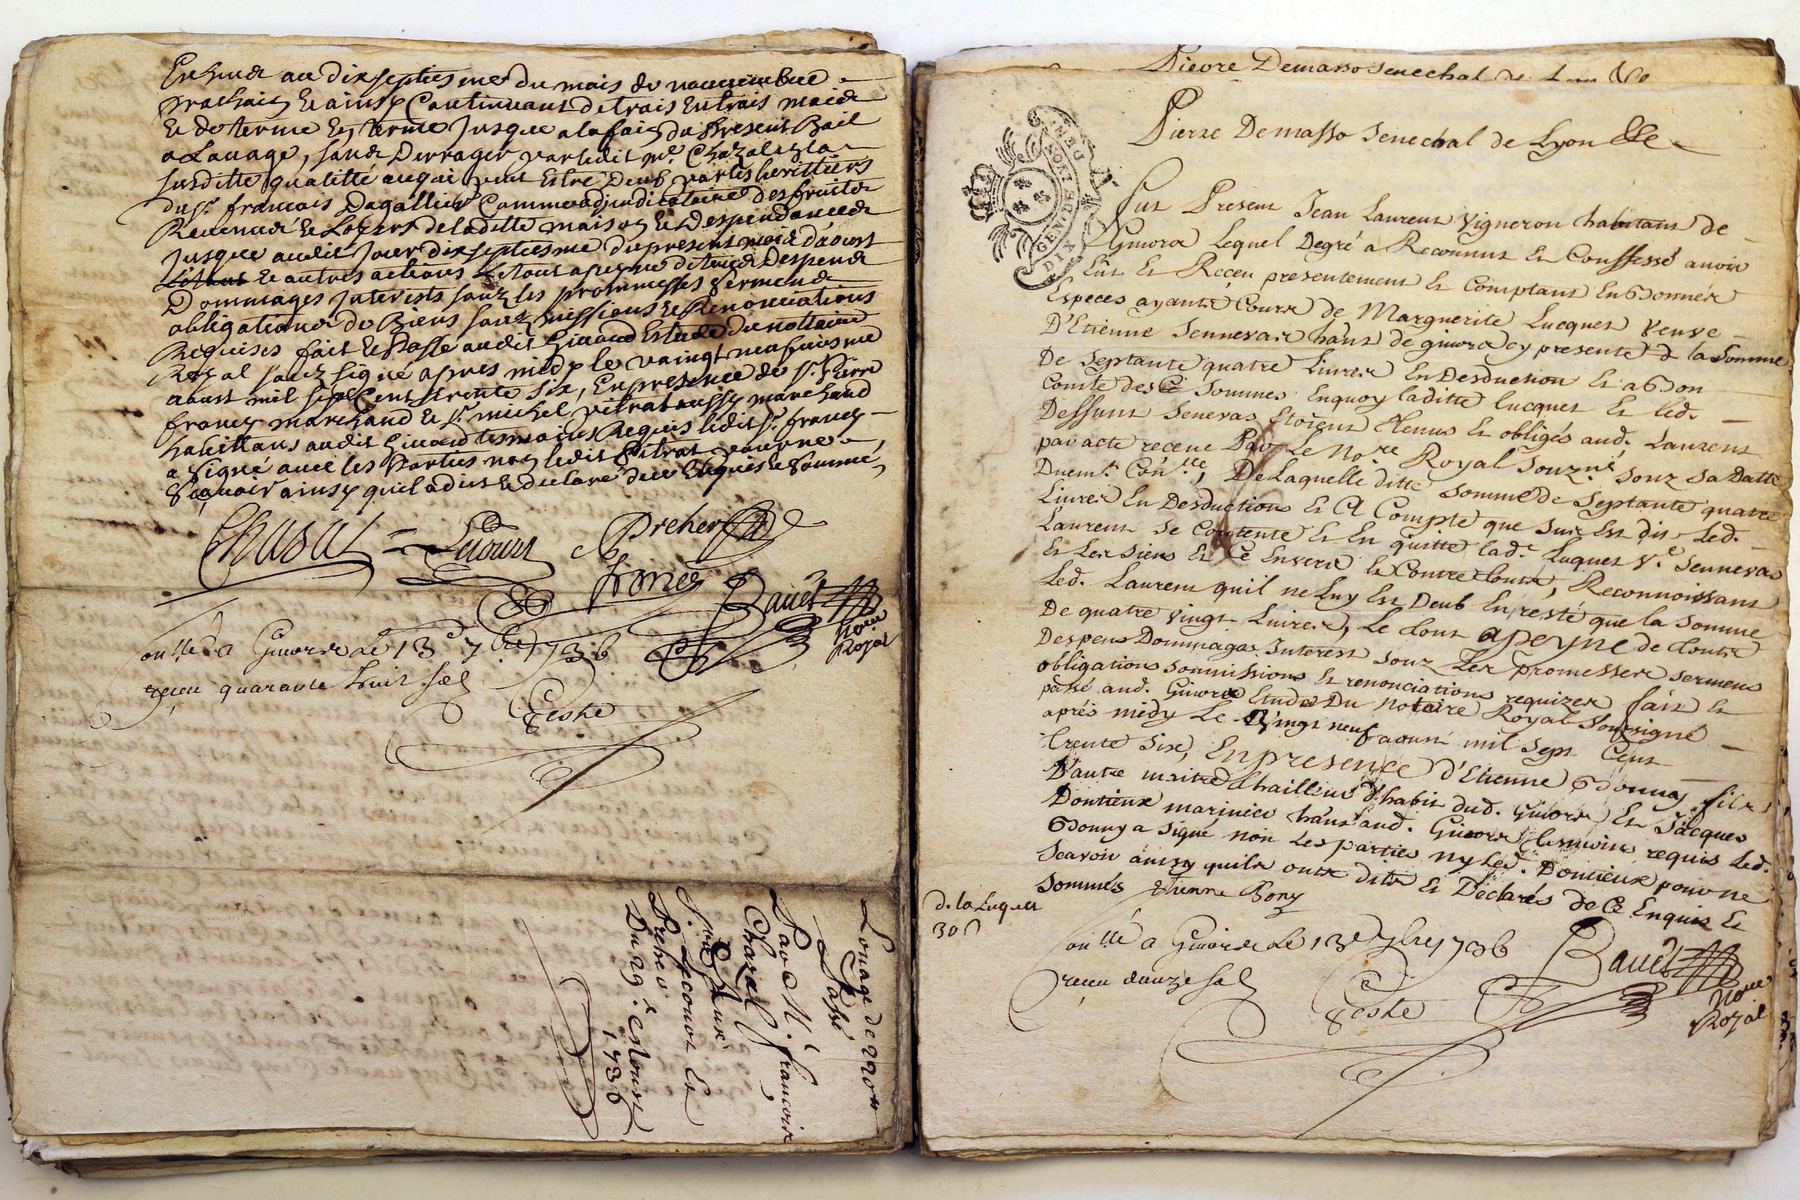 Escheue au dixseptiesme du mois de nouuembre
prochain & ainsy Continuant de trois en trois mois
& de terme en terme jusques a la fain du present Bail
a Louage, sans Derrager par ledit me. Chazal en la
susditte qualitté
du sr. francois Dagallier Comme adjudicataire des fruits
Reuenus & Loyers de laditte maison & Despendances
jusques audit jour dixseptiesme du present mois d'aoust
& autres actions Le tout a peyne de tous Despens
Dommages Interests souz les prommesses serments
obligations de Biens soumissions & Renonciations
Requises fait & Passé audit Giuord Estude du nottaire
Royal souzsigné apres midy le vaingt neufuiesme
aoust mil sept Cent trente six, En presence de sr. Pierre
francy marchand & sr. michel vitrat aussy marchand
habittans audit Giuord tesmoins Requis ledit sr. francy
a signé auec les Parties non ledit vitrat pour ne
sçauoir ainsy quil a dit & declaré de ce Enquis & sommé
Chasal
Bauet
No.re Royal
Con.llé a Giuors le 13e 7bre 1736
receu quarante huit sols
Teste
Louage de 220 ll
Passé
Par Mr. francois
Chazal
Preneu
Du 29e. aoust
1736
Pierre Demasso Senechal de Lyon &c
Pierre Demasso Senechal de Lyon &c
GEN. DE LYON
DIX DEN
Fut Present Jean Laurent Vigneron habitant de
Giuors Lequel Degré a Reconnu et Conffessé auoir
Eut et Reçeu presentement et Comptant En Bonnes
Especes ayants Cours de Marguerite Lucquet Veuve
D'Etienne Sennevas ha'nt de giuors cy presente de la Somme
De Septante quatre Liures En Desduction et a Bon
Comte des Sommes Enquoy laditte Lucquet et led.
Deffunt Senevas Etoient Tenus et obligés aud. Laurent
par acte receu Par Le No.re Royal Souz.né souz sa Datte
Duemt. Con.llé, De Laquelle ditte Somme de Septante quatre
Liures En Desduction et A Compte que Sus Est dis Led.
Laurent Se Contente et En quitte lad.e Luquet V.e Sennevas
et Les Siens et Ce Envers et Contre touts, Reconnoissant
Led. Laurent quil ne Luy Est Deub En resté que la Somme
De quatre Vingt Liures, Le tout a peyne de touts
Despens Dommages Interest Souz Les Promesses Sermens
obligations sommissions et renonciations requizes fait et
passé aud. Giuors Etude Du Notaire Royal Souzsigné
après midy Le Vingt neuf aoust mil Sept Cent
trente Six, En presence d'Etienne Bonny fils
D'autre maitre Chaillieur d'habit dud. Giuors et Jacques
Dontieux marinier ha'nt aud. Giuors tesmoins requis Led.
Bonny a Signé non Les parties ny Led. Dontieux pour ne
Scavoir ainsy quils onts dits et Déclarés de Ce Enquis et
Sommés Etienne Bony
d. la Luquet
30 s
Con.llé a Giuors Le 13e 7bre 1736
receu douze sols
Teste
Bauet
No.re
Royal